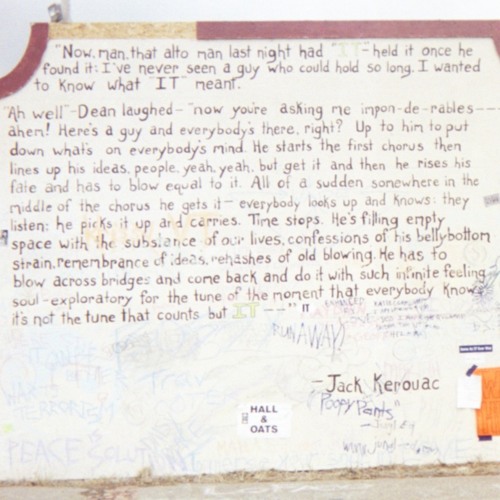 "Now, man, that alto man last night had "IT"-held it once he
found it; I've never seen a guy who could hold so long. I wanted
to know what "IT" meant.
"Ah well"-Dean laughed-"now you're asking me impon-de-rables--
ahem! Here's a guy and everybody's there, right? Up to him to put
down what's on everybody's mind. He starts the first chorus then
lines up his ideas, people, yeah, yeah, but get it and then he rises his
fate and has to blow equal to it. All of a sudden somewhere in the
middle of the chorus he gets it- everybody looks up and knows; they
listen; he picks it up and carries. Time stops. He's filling empty
space with the substance of our lives, confessions of his bellybottom
strain, remembrance of ideas, rehashes of old blowing. He has to
blow across bridges and come back and do it with such infinite feeling
soul-exploratory for the tune of the moment that everybody knows
it's not the tune that counts but IT---"
RUNAWAY
-Jack Kerouac
"Poopy Pants"
HALL
&
OATS
TERRORISM
PEACE